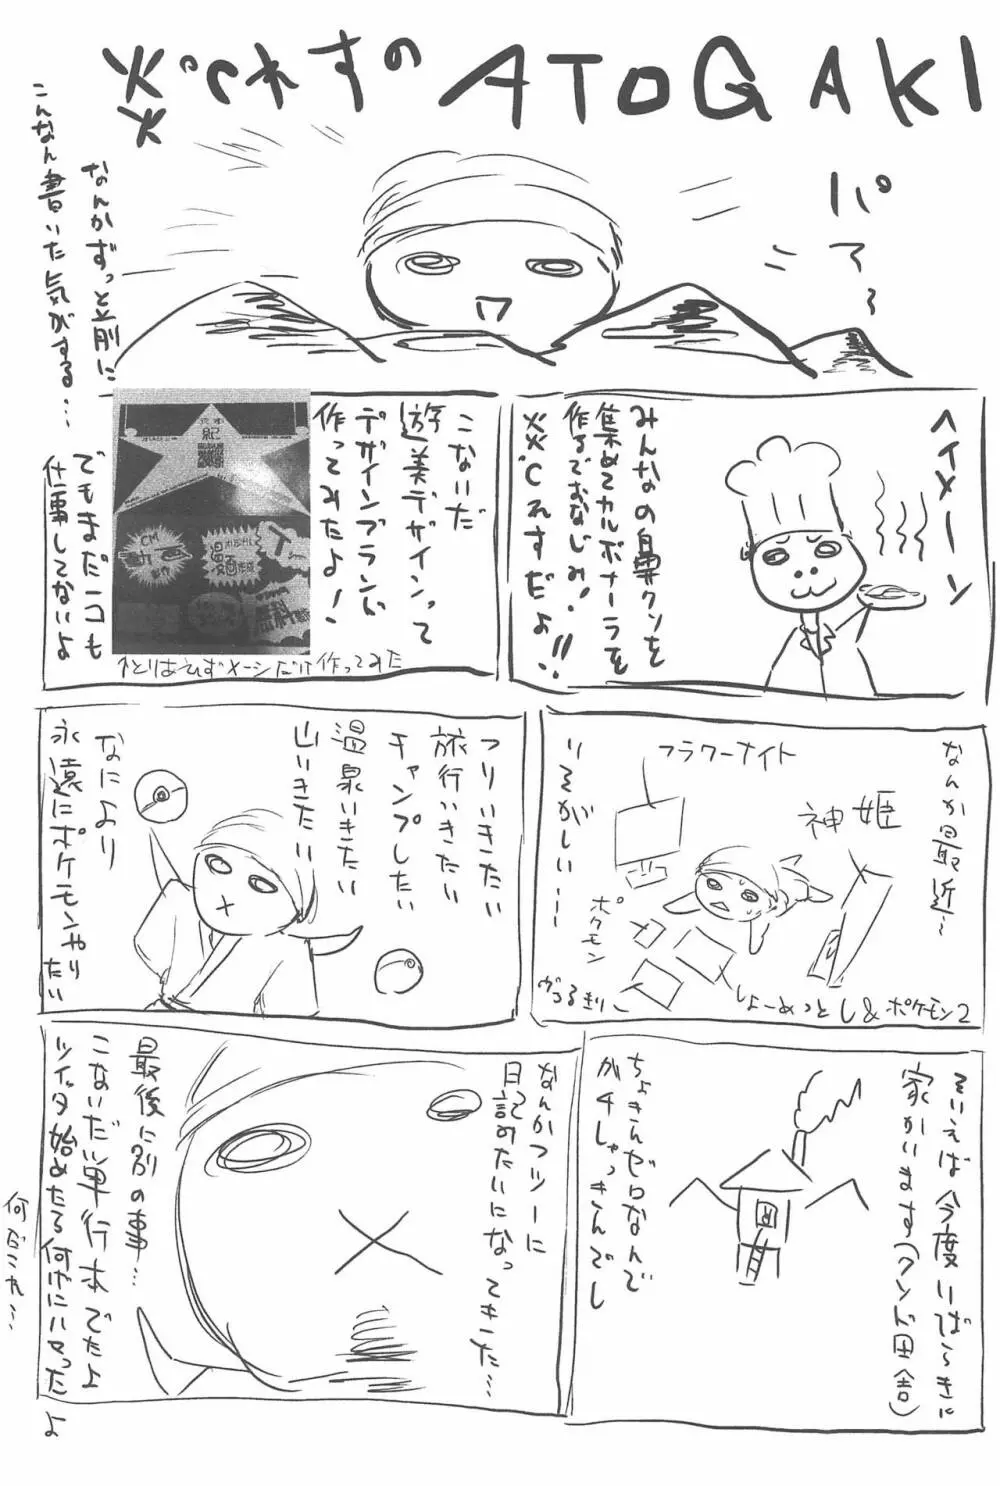 炎℃れすのATOGAKI
パァ〜
なんかずっと前に
こんなん書いた気がする…
ヘイメーン
みんなの鼻クソを
集めてカルボナーラを
作るでおなじみ!
炎℃れすだよ!!
こないだ
遊美デザインって
デザインブランド
作ってみたよ!
でもまだ一コも
仕事してないよ
↑とりあえずメーシだけ作ってみた
なんか最近〜
いそがしい…
フラワーナイト
神姫
ポケモン
しょーめっとし&ポケモン2
つりいきたい
旅行いきたい
キャンプしたい
温泉いきたい
山いきたい
なにより
永遠にポケモンやり
たい
そいえば今度いばらきに
家かいます(クソド田舎)
ちょきんゼロなんで
ガチしゃっきんでし
なんかフツーに
日記みたいになってきた…
最後に別の事…
こないだ単行本でたよ
ツイッタ始めたる何気にハマったよ
何だこれ…